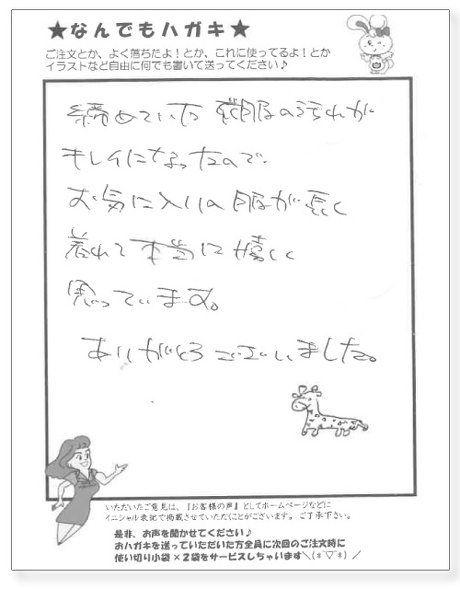 ★なんでもハガキ★
ご注文とか、よく落ちたよ!とか、これに使ってるよ!とか
イラストなど自由に何でも書いて送ってください♪
諦めていた 衣服の汚れが
キレイになったので、
お気に入りの服が長く
着れて本当に嬉しく
思っています。
ありがとうございました。
いただいたご意見は、『お客様の声』としてホームページなどに
イニシャル表記で掲載させていただくことがございます。ご了承下さい。
是非、お声を聞かせてください♪
おハガキを送っていただいた方全員に次回のご注文時に
使い切り小袋×2袋をサービスしちゃいます＼(*´▽`*)／